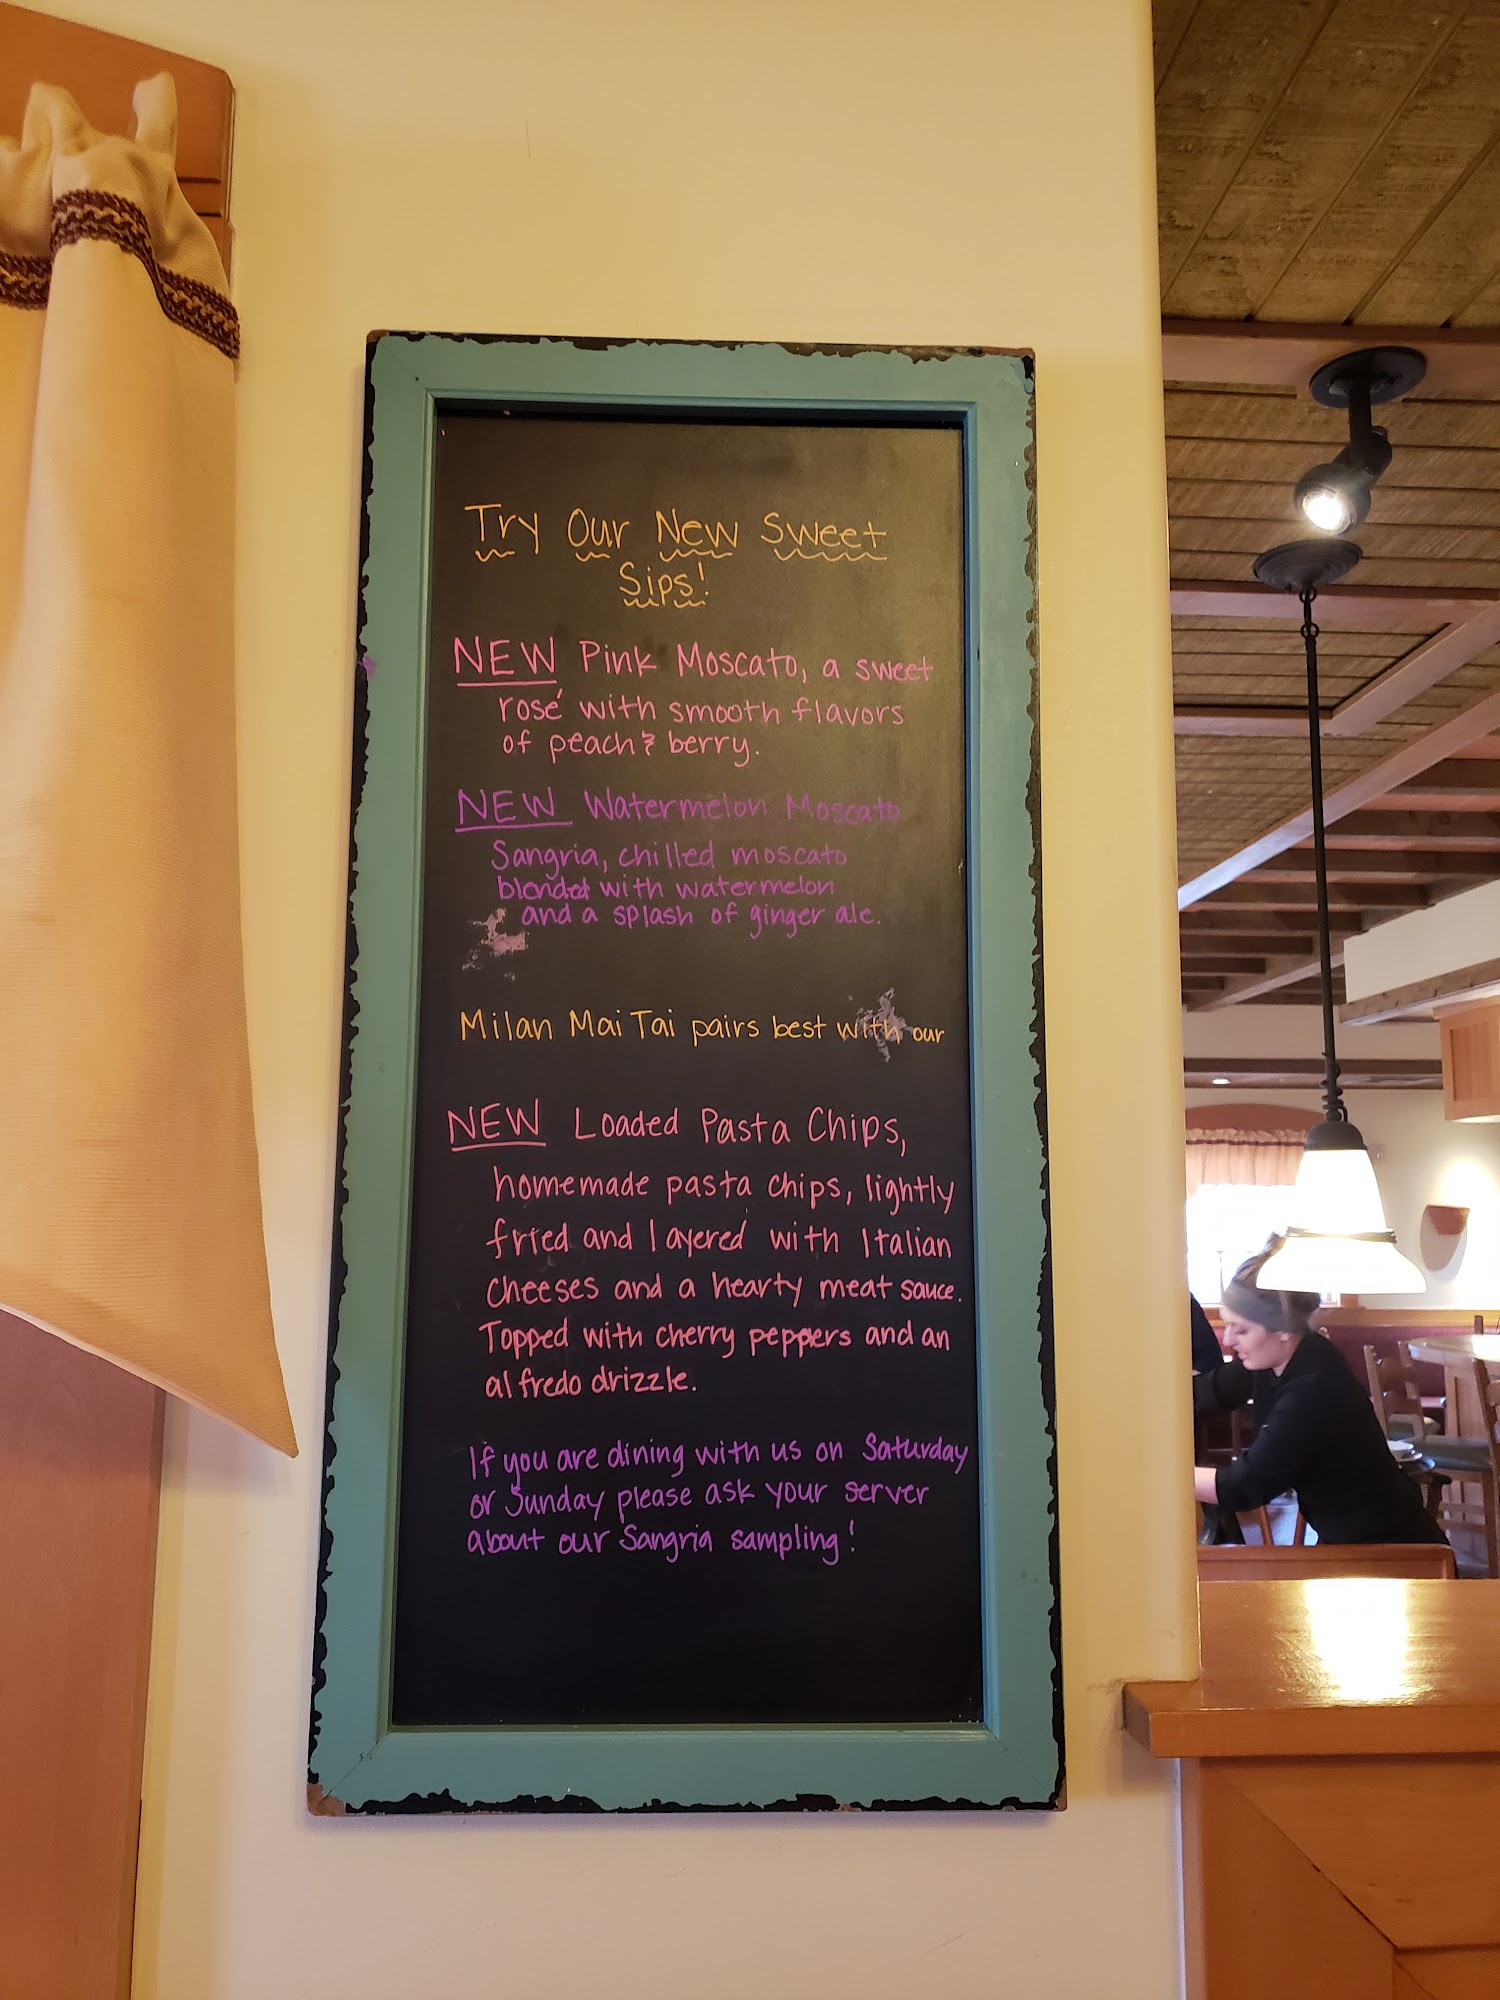 Try Our New Sweet
Sips!
NEW Pink Moscato, a sweet
rosé with smooth flavors
of peach & berry.
NEW Watermelon Moscato
Sangria, chilled moscato
blended with watermelon
and a splash of ginger ale.
Milan Mai Tai pairs best with our
NEW Loaded Pasta Chips,
homemade pasta chips, lightly
fried and layered with Italian
cheeses and a hearty meat sauce.
Topped with cherry peppers and an
alfredo drizzle.
If you are dining with us on Saturday
or Sunday please ask your server
about our Sangria sampling!